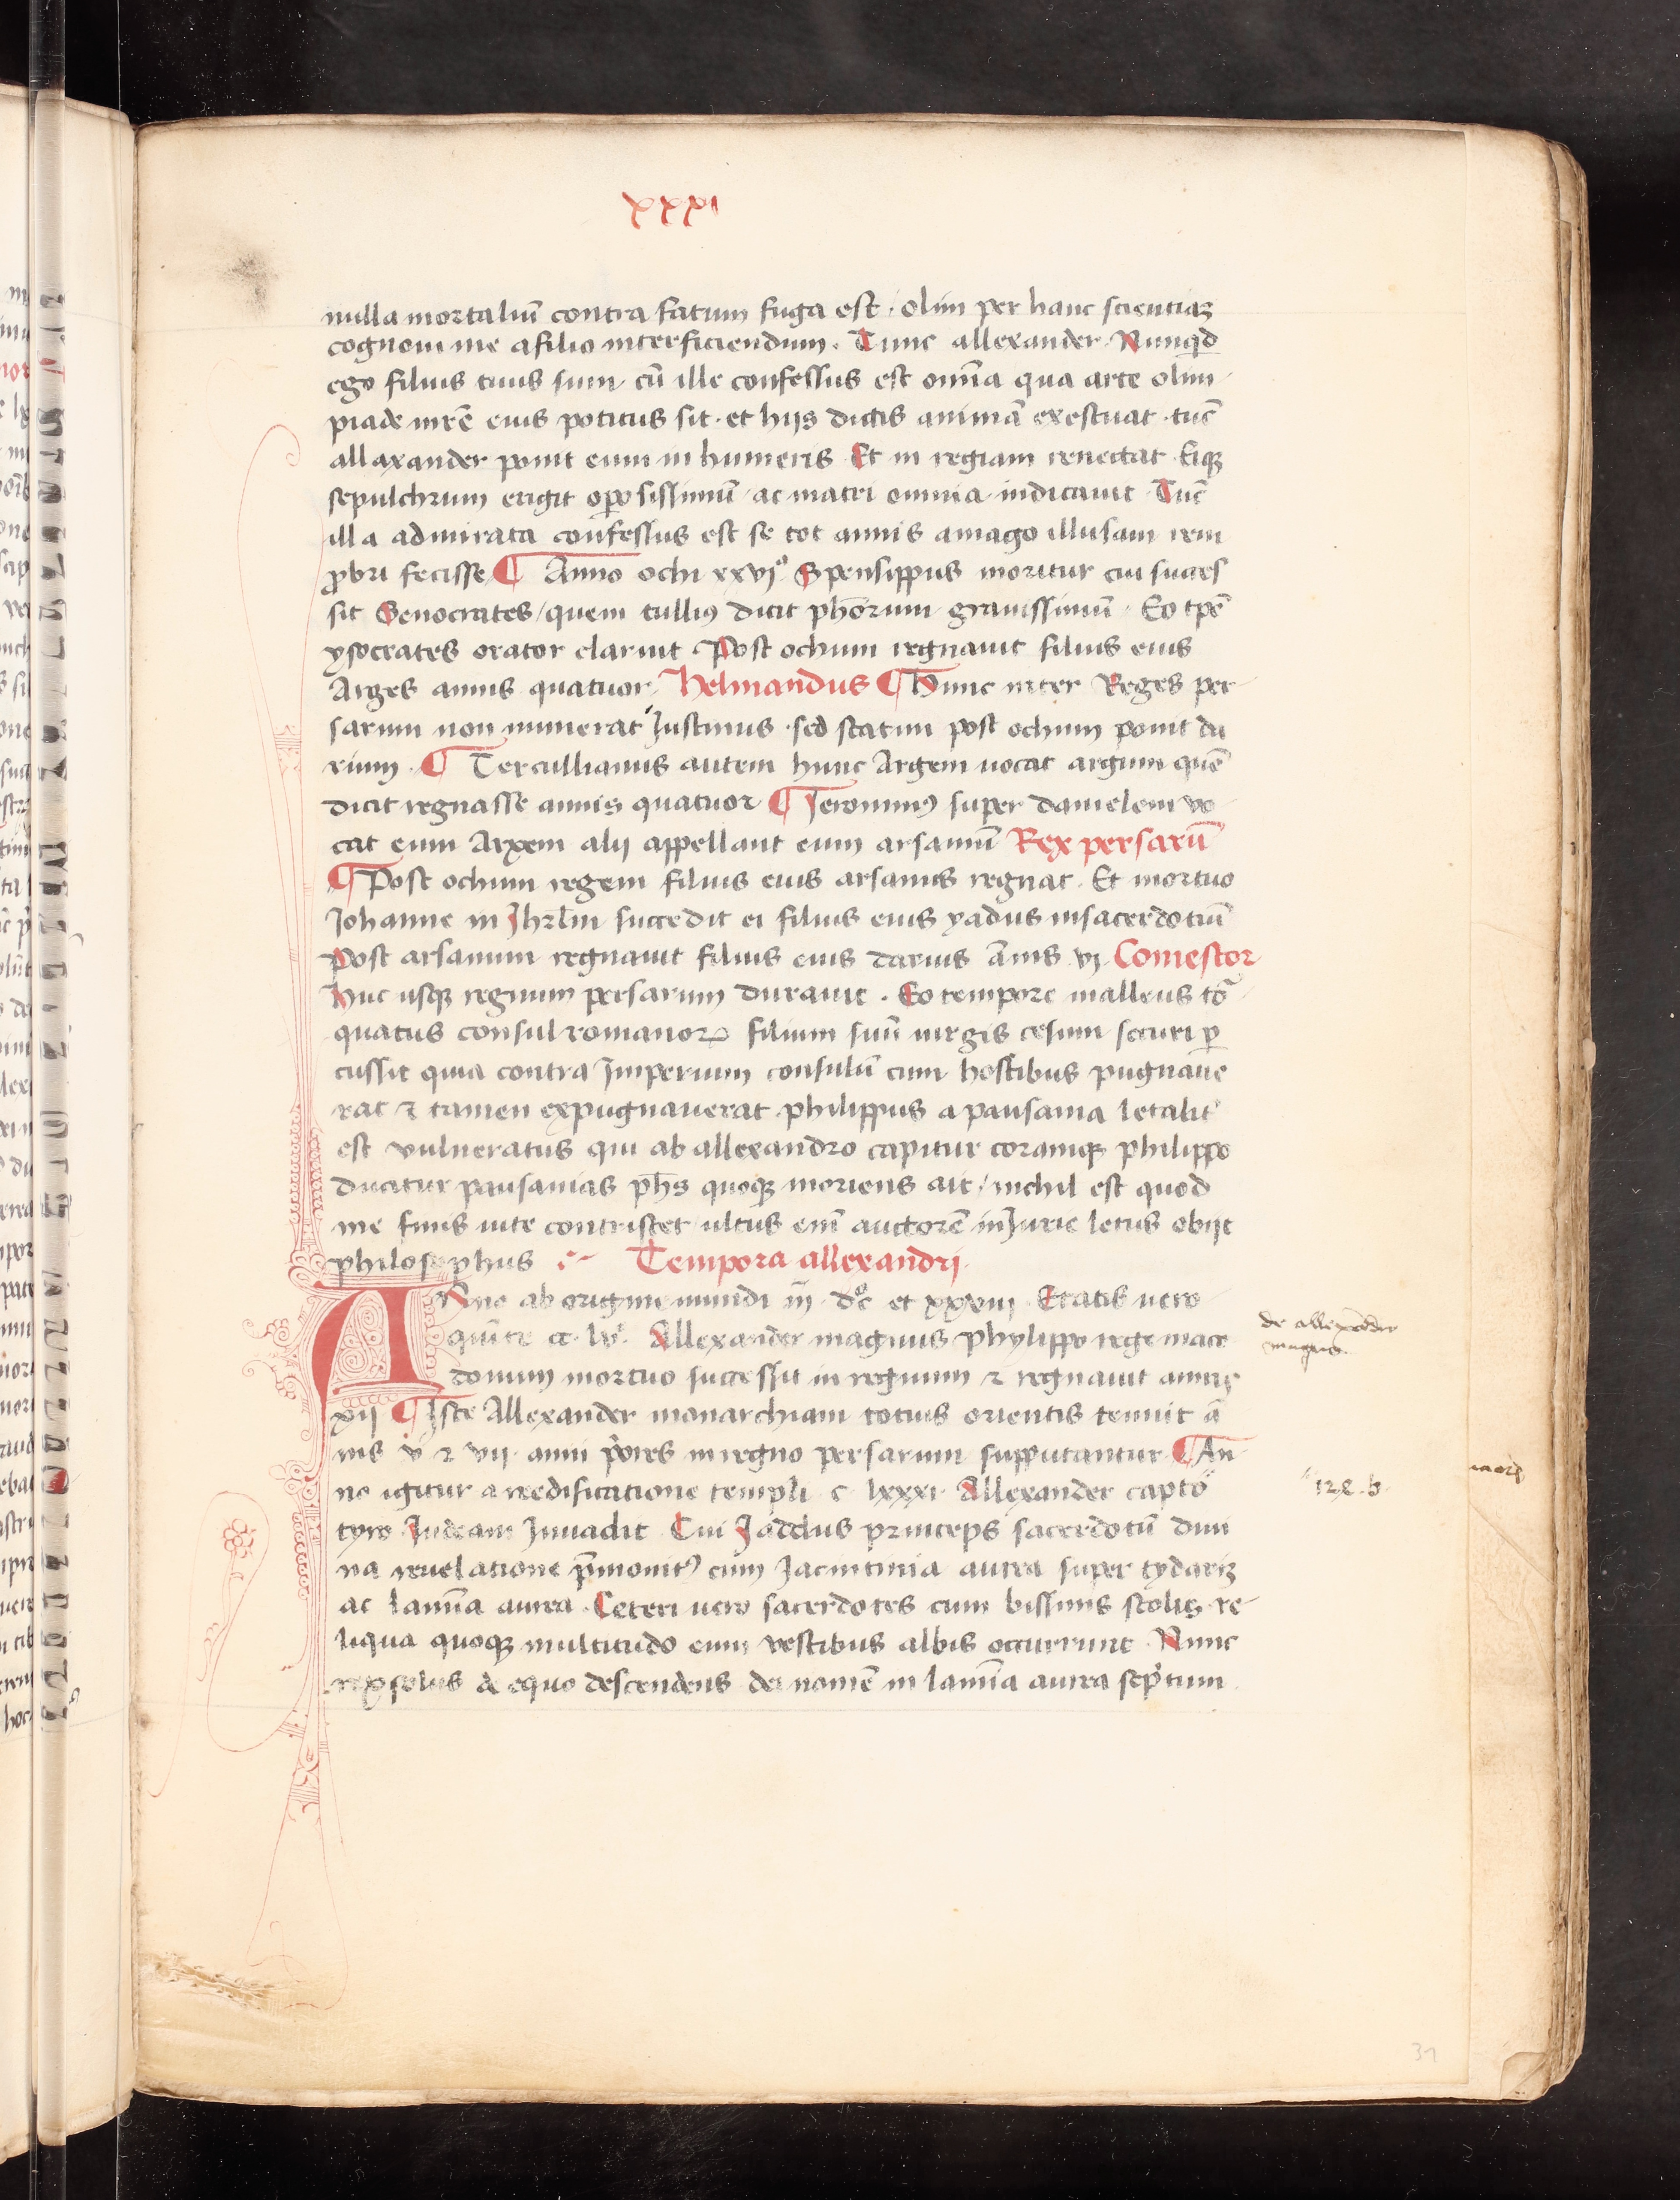 xxxi
nulla mortaliū contra fatum fuga est · olim per hanc scientiaz
cognoui me afilio interficiendum · Tunc allexander · Nunqͥd
ego filius tuus sum · cū ille confessus est om̄ia qua arte olim
piade inrē eius potitus sit · et hijs dictis animā exestuat · tūc
allaxander ponit eum in humeris Et in regiam reuectat Eiqꝫ
sepulchrum erigit oꝑosissimū ac matri omnia indicauit Tūc
illa admirata confessus est se tot annis amago illusam rem
ꝓbri fecisse ¶ Anno ochi xxvjº Spensippus moritur cui succes
sit Senocrates / quem tulliꝰ dicit ph̄orum grauissimū · Eo tp̄e
ysocrates orator claruit Post ochum regnauit filius eius
Arges annis quatuor Helinandus ¶ Hunc inter Reges per
sarum non numerat Justinus · sed statim post ochum ponit da
rium · ¶ Tertullianus autem hunc Argem uocat argum quē
dicit regnasse annis quatuor ¶ Jeronimꝰ super danielem vo
cat eum Arxem alij appellant eum arsamū Rex persarū
¶ Post ochum regem filius eius arsamus regnat · Et mortuo
Johanne in Jhrl̄m succedit ei filius eius yadus insacerdotiū
Post arsamum regnauit filius eius darius ān̄is vj Comestor
Huc usqꝫ regnum persarum durauit · Eo tempore malleus tō
quatus consul romanoꝝ filium suū uirgis cesum securi ꝑ
cussit quia contra Imperium consulū cum hostibus pugnaue
rat ⁊ tamen expugnauerat philippus a pausania letalit᷑
est vulneratus qui ab allexandro capitur coramqꝫ philippo
ducitur pausanias ph̄s quoqꝫ moriens ait / nichil est quod
me finis uite contristet ultus eni͂ auctorē inJurie letus obijt
philosophus Tempora allexandrj
ANno ab origine mundi iij̄ · dºc et xxxiij Etatis uero
quīte cc · lvͥ · Allexander magnus phylippo rege mace
donum mortuo successit in regnum ⁊ regnauit annis
xij ¶ Iste Allexander monarchiam totius orientis tenuit ā
nis v̄ ⁊ vij · anni pͥores in regno persarum supputantur ¶ An
no igitur a reedificatione templi c lxxxi Allexander capto
tyro Judeam Inuadit Cui Jaddus princeps sacerdotū diui
na reuelatione p̄monitꝰ cum Jacintinia aurea super tydariz
ac lamīa aurea · Ceteri uero sacerdotes cum bissinis stolis · re
liqua quoqꝫ multitudo cum vestibus albis occurrunt · Nunc
rex solus de equo descendens dei nomē in lamīa aurea scpͥtum
de allexādro
magno
128 · b ·
31